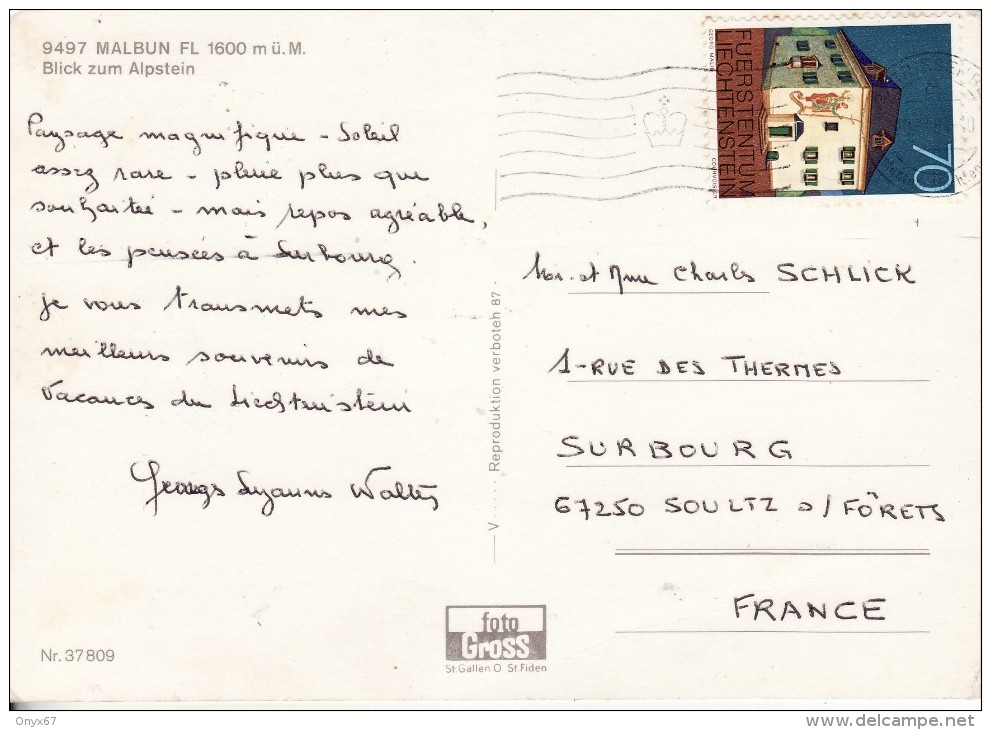 9497 MALBUN FL 1600 m ü. M.
Blick zum Alpstein
Paysage magnifique - Soleil
assez rare - pluie plus que
souhaitée - mais repos agréable,
et les pensées à Surbourg.
je vous transmets mes
meilleurs souvenirs de
Vacances du Liechtenstein
Georges Suzanne Walter
Nr. 37809
V ..... Reproduktion verboten 87 .
foto
Gross
St. Gallen O St. Fiden
FUERSTENTUM
LIECHTENSTEIN
70
GEORG MALIN
COURVOISIER
Mr. et Mme Charles SCHLICK
1-RUE DES THERMES
SURBOURG
67250 SOULTZ s/ FÔRETS
FRANCE
Onyx67
www.delcampe.net